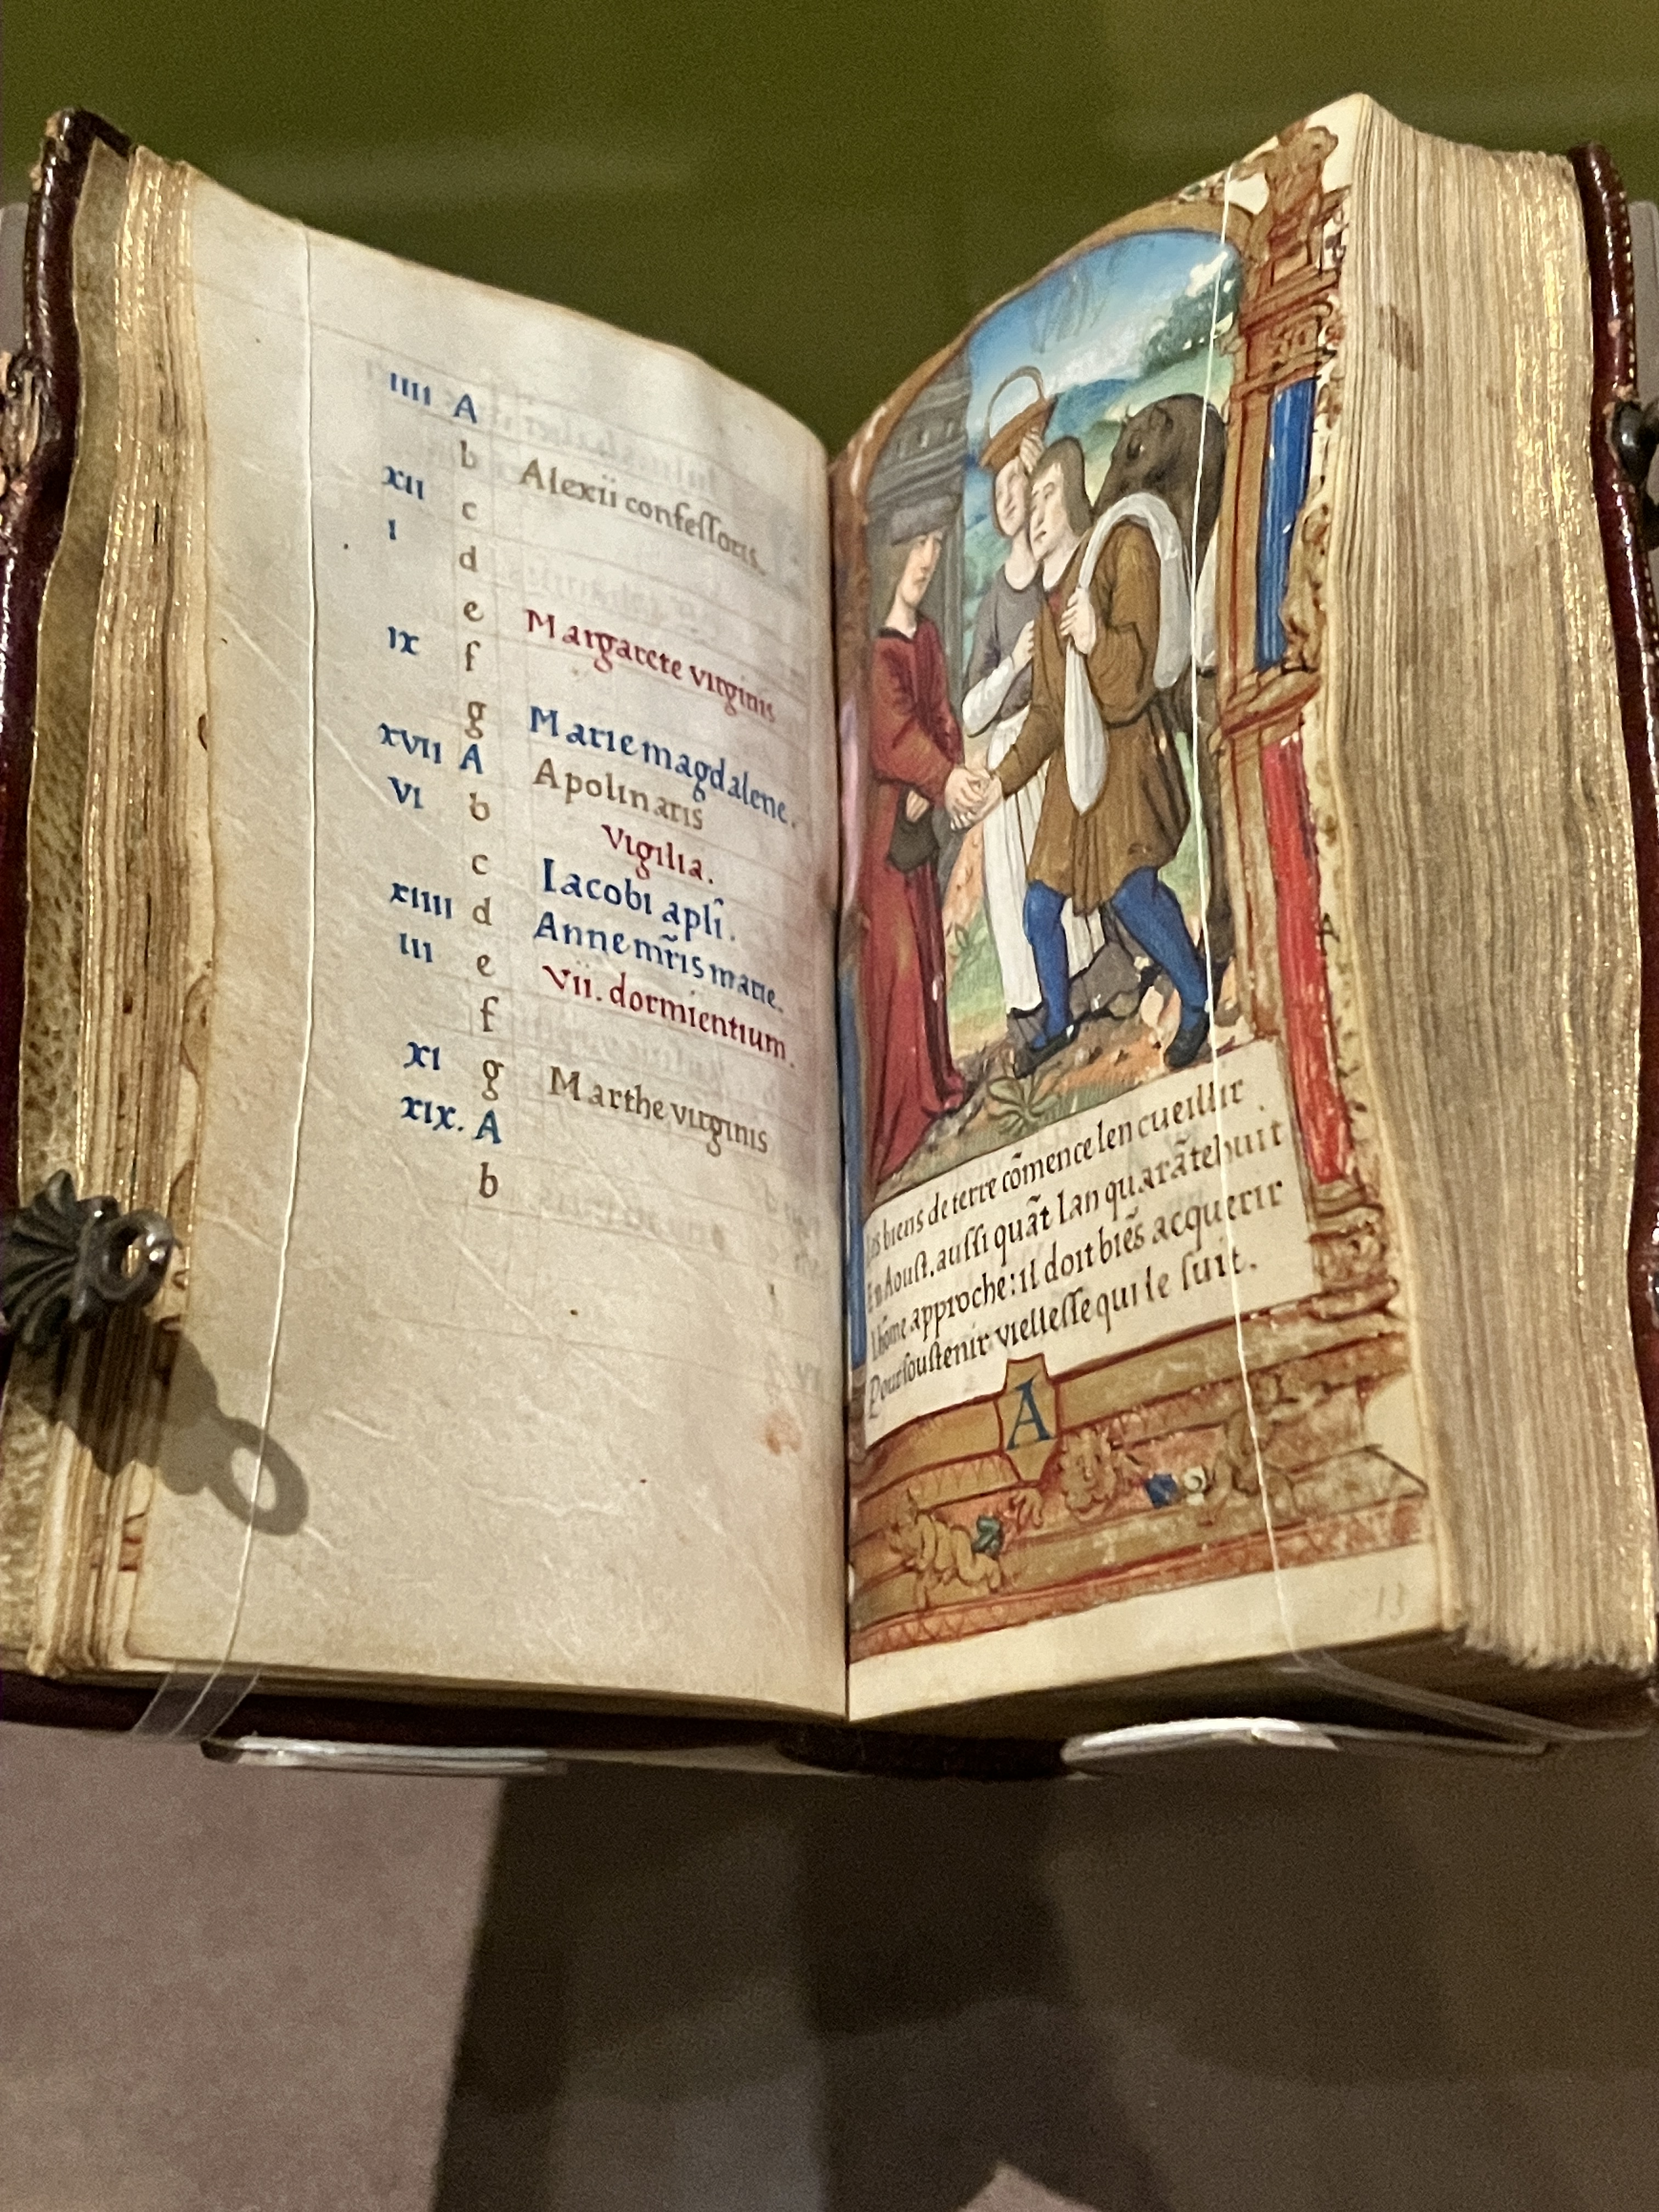 IIII A
b Alexii confessoris.
XII c
I d
e Margarete virginis
IX f
g Marie magdalene.
XVII A Apolinaris
VI b Vigilia.
c Iacobi apłi.
XIIII d Anne mr̃is marie.
III e Vii. dormientium.
f
XI g Marthe virginis
XIX. A
b
Les biens de terre cõmence len cueillir
En Aoust. aussi quãt lan quarãtehuit
Lhõme approche: il doit biẽs acquerir
Pour soustenir viellesse qui le suit.
A
13